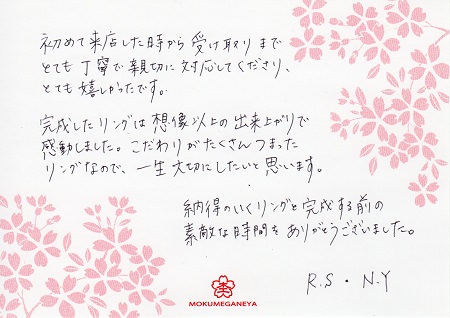 初めて来店した時から受け取りまで
とても丁寧で親切に対応してくださり、
とても嬉しかったです。
完成したリングは想像以上の出来上がりで
感動しました。こだわりがたくさんつまった
リングなので、一生大切にしたいと思います。
納得のいくリングと完成する前の
素敵な時間をありがとうございました。
R.S・N.Y
MOKUMEGANEYA